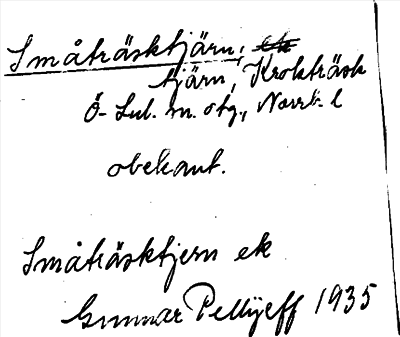 Småträsktjärn, ek
tjärn, Krokträsk
Ö-Lul. m. otg., Norrb. l
obekant.
Småträsktjern ek
Gunnar Pellijeff 1935